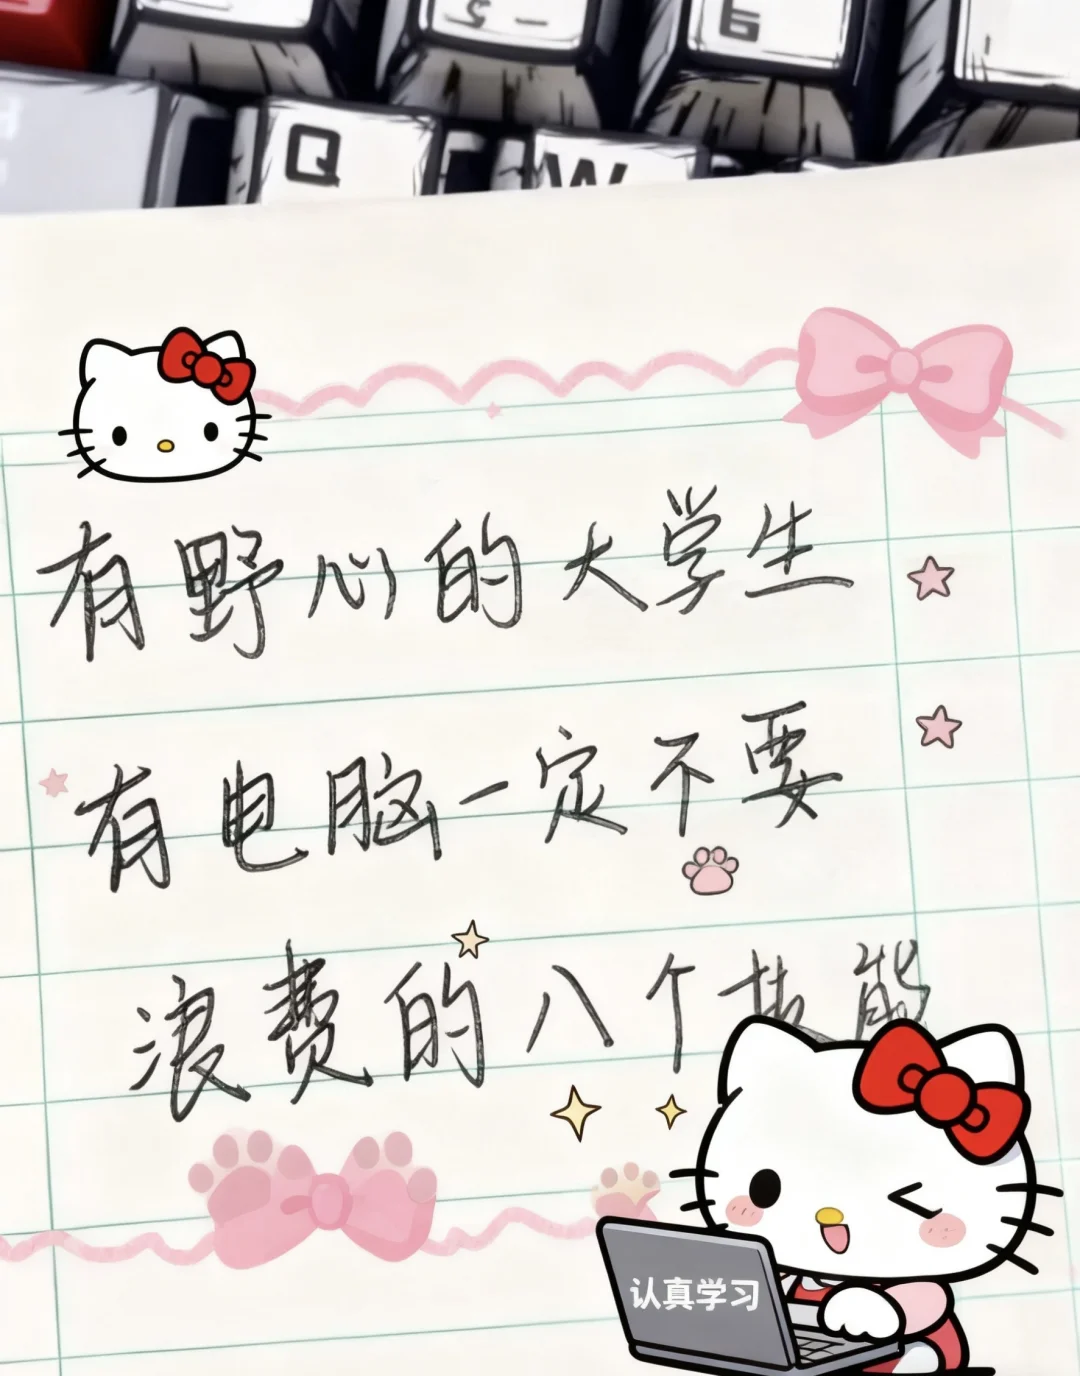 Q W
有野心的大学生
有电脑一定不要
浪费的八个技能
认真学习